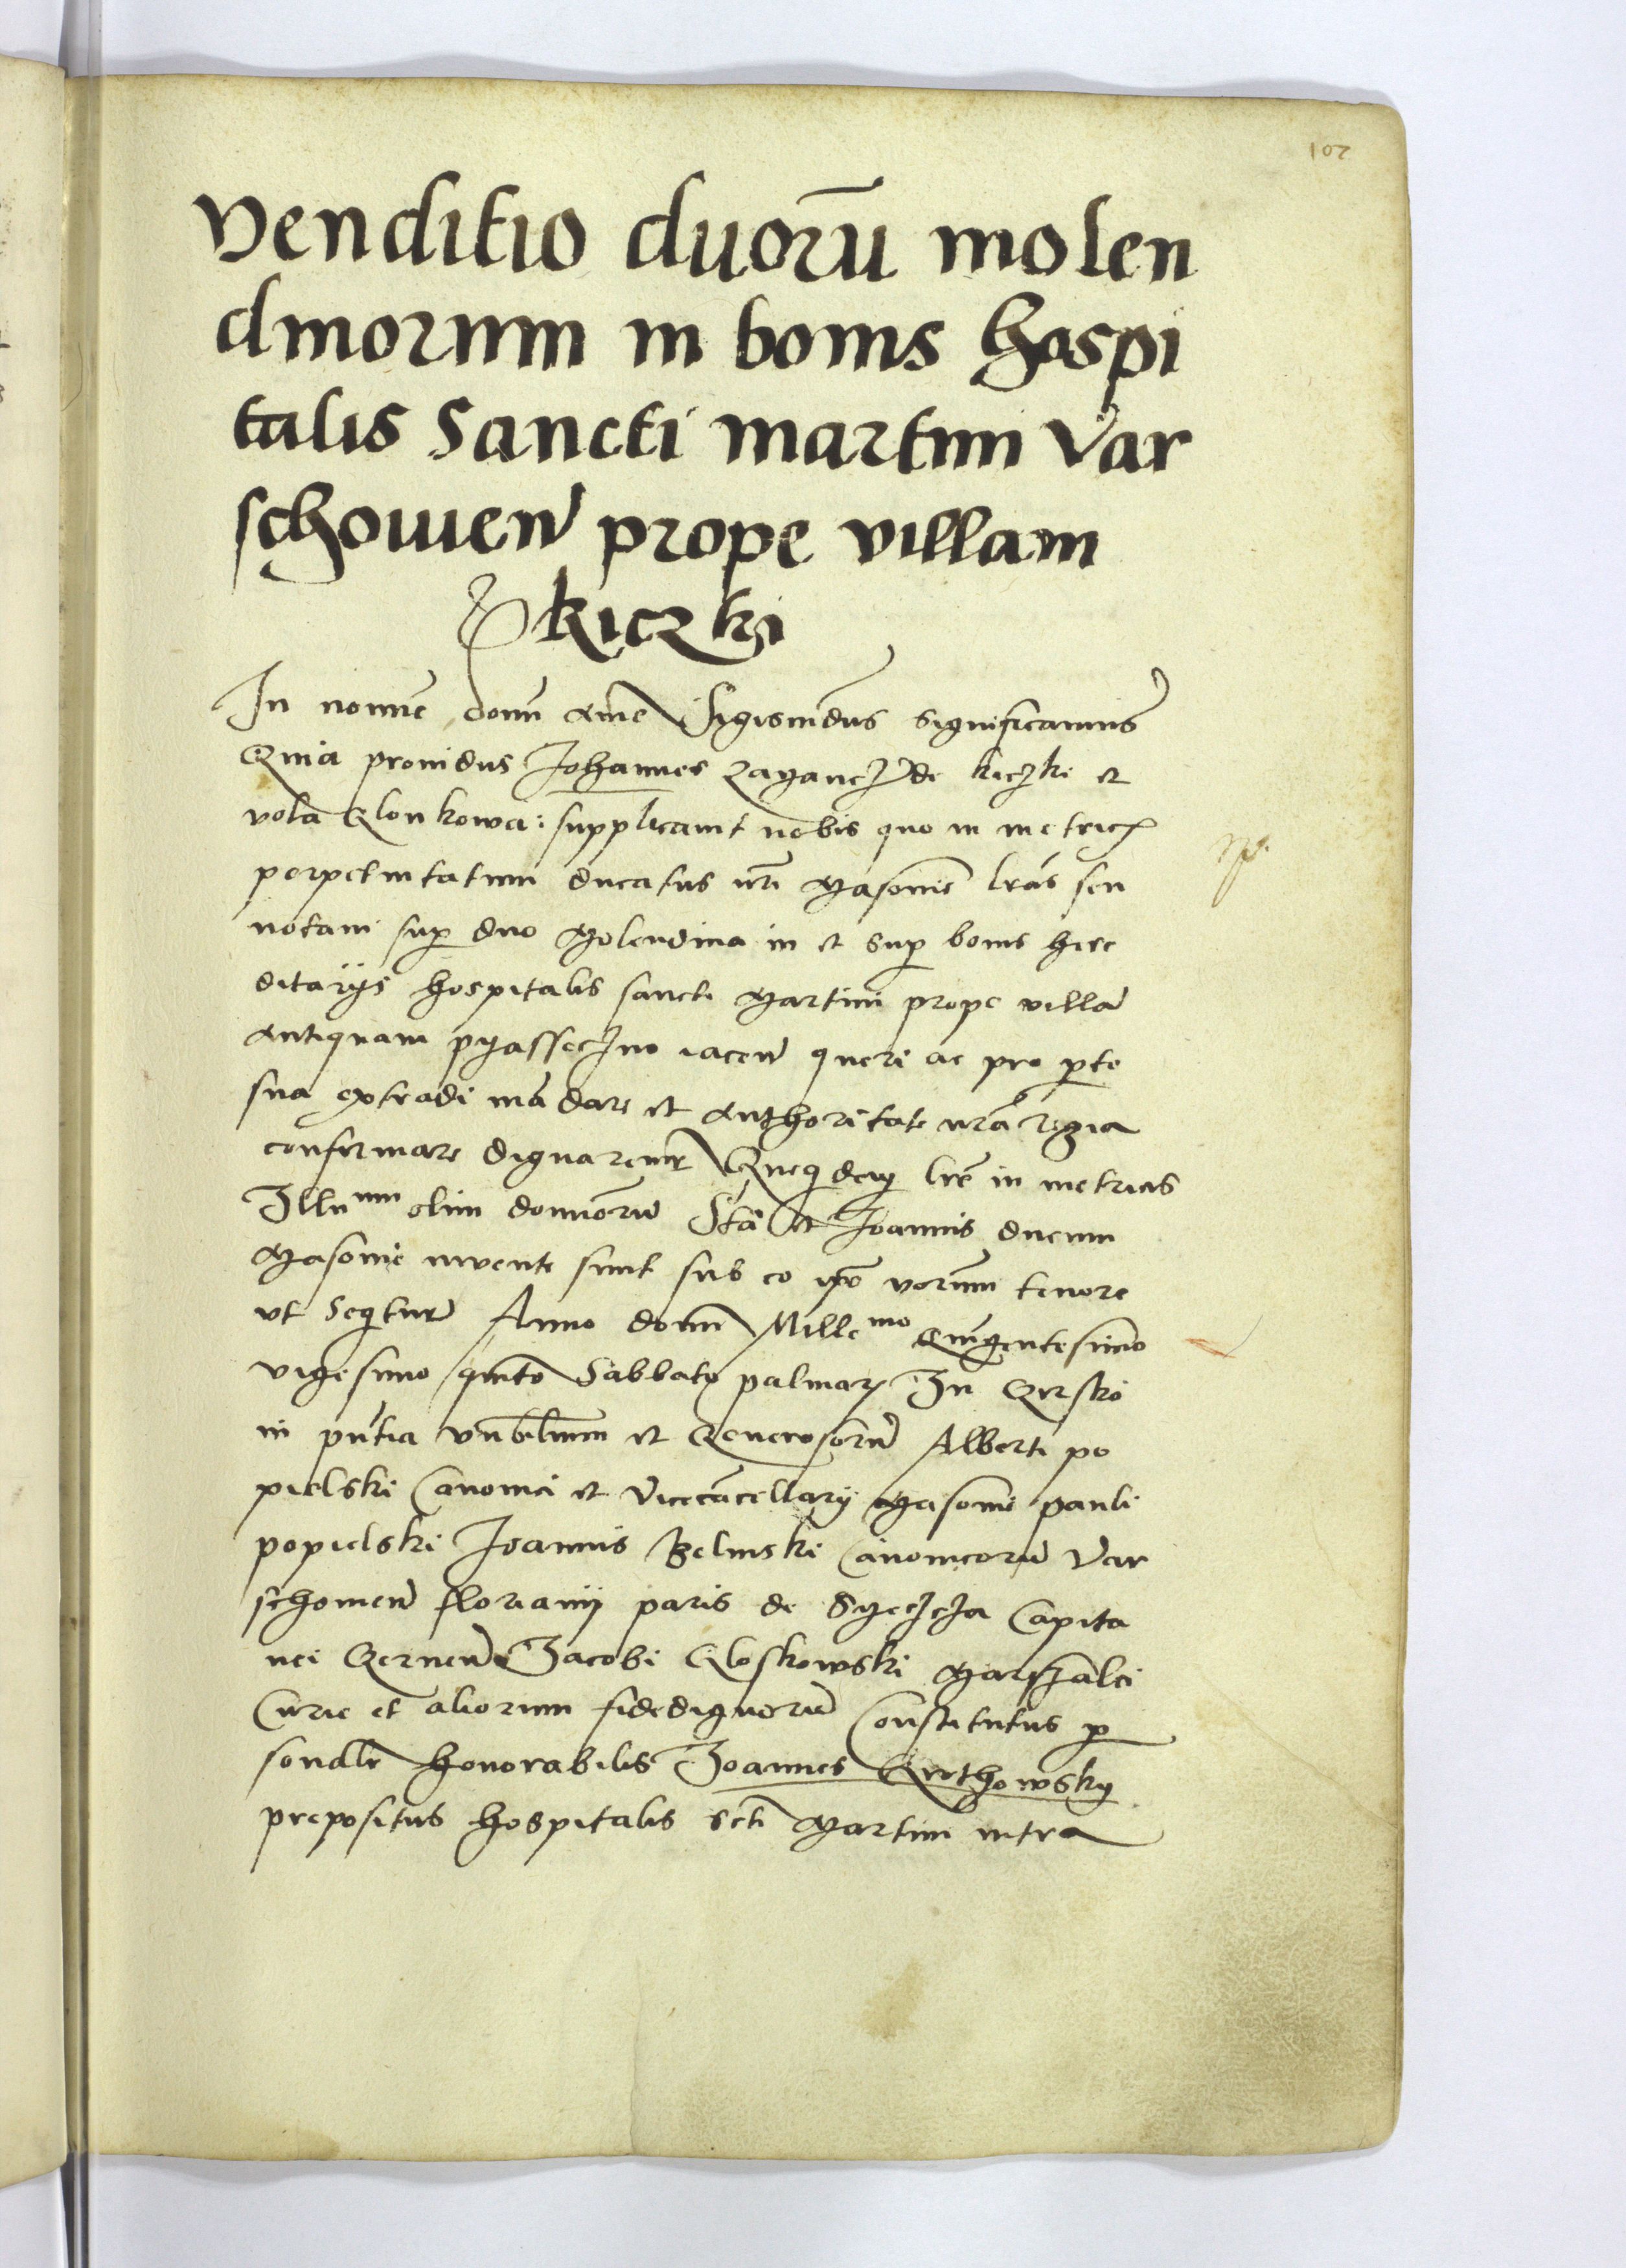 102
Venditio duorū molen
dinorum in bonis hospi
talis Sancti martini Var
schouien prope villam
kiczki
In nomīe domī amē Sigismūdus significamus
Quia prouidus Johannes Zayancz de kiczki et
vola Glonkowa: supplicauit nobis quo in metric
perpetuitatum ducatus nr̄i Masouie lr̄as seu
notam sup duo Molendina in et sup bonis here
ditarijs hospitalis sancti Martini prope villā
antiquam pyasseczno iacen queri ac pro pte
sua extradi mādare et authoritate nr̄a regia
confirmare dignaremr Quequidem lr̄e in metricis
Illu mm olim dominorū Sta et Joannis ducum
Masouie inuente sunt sub eo ipo verum tenore
vt sequitur Anno domī Mille mo Quīngentesimo
vigesimo quinto Sabbato palmar In
in pn̄tia vn̄bilium et Generosorū Alberti po
pielski Canonici et vicecācellarij Masouie pauli
popielski Joannis Belinski Canonicorū Var
schouien florianij paris de Capita
nei Gernen Jacobi Gloskowski Marszalci
Curie et aliorum fidedignorū Constitutus p
sonalr honorabilis Joannes
prepositus hospitalis scti Martini intra